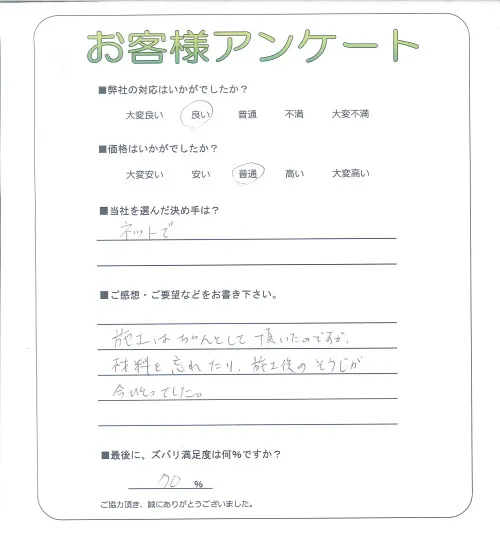 お客様アンケート
■弊社の対応はいかがでしたか？
大変良い 良い 普通 不満 大変不満
■価格はいかがでしたか？
大変安い 安い 普通 高い 大変高い
■当社を選んだ決め手は？
ネットで
■ご感想・ご要望などをお書き下さい。
施工はちゃんとして頂いたのですが、
材料を忘れたり、施工後のそうじが
今ひとつでした。
■最後に、ズバリ満足度は何%ですか？
70 %
ご協力頂き、誠にありがとうございました。